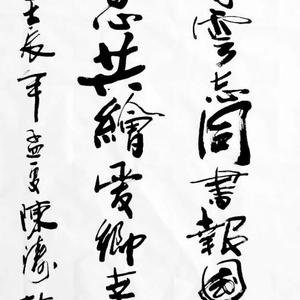 雲志同書報國
思共繪愛鄉
壬辰年孟夏陳濤